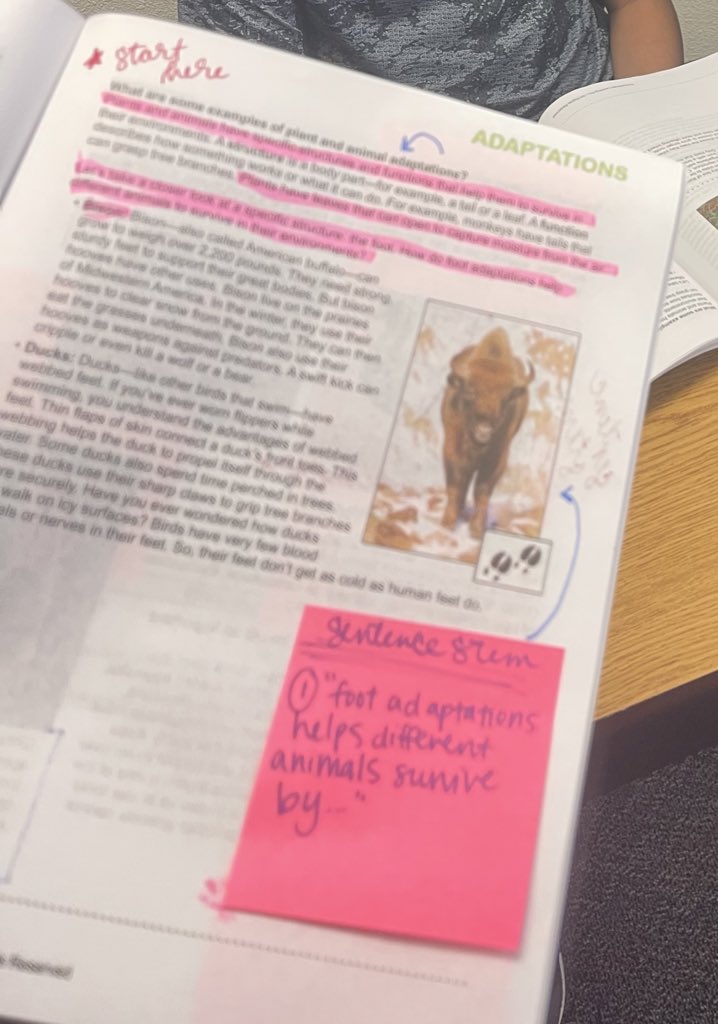 * start
here
ADAPTATIONS
What are some examples of plant and animal adaptations?
Plants and animals have specific structures and functions that help them to survive in
their environments. A structure is a body part—for example, a tail or a leaf. A function
describes how something works or what it can do. For example, monkeys have tails that
can grasp tree branches. Plants have leaves that can open to capture moisture from the air.
Let's take a closer look at a specific structure: the foot. How do foot adaptations help
different animals to survive in their environments?
• Bison: Bison—also called American buffalo—can
grow to weigh over 2,200 pounds. They need strong,
sturdy feet to support their great bodies. But bison
hooves have other uses. Bison live on the prairies
of Midwestern America. In the winter, they use their
hooves to clear snow from the ground. They can then
eat the grasses underneath. Bison also use their
hooves as weapons against predators. A swift kick can
cripple or even kill a wolf or a bear.
• Ducks: Ducks—like other birds that swim—have
webbed feet. If you've ever worn flippers while
swimming, you understand the advantages of webbed
feet. Thin flaps of skin connect a duck's front toes. This
webbing helps the duck to propel itself through the
water. Some ducks also spend time perched in trees.
These ducks use their sharp claws to grip tree branches
securely. Have you ever wondered how ducks
walk on icy surfaces? Birds have very few blood
or nerves in their feet. So, their feet don't get as cold as human feet do.
sentence stem
① "foot adaptations
helps different
animals survive
by..."
Reserved